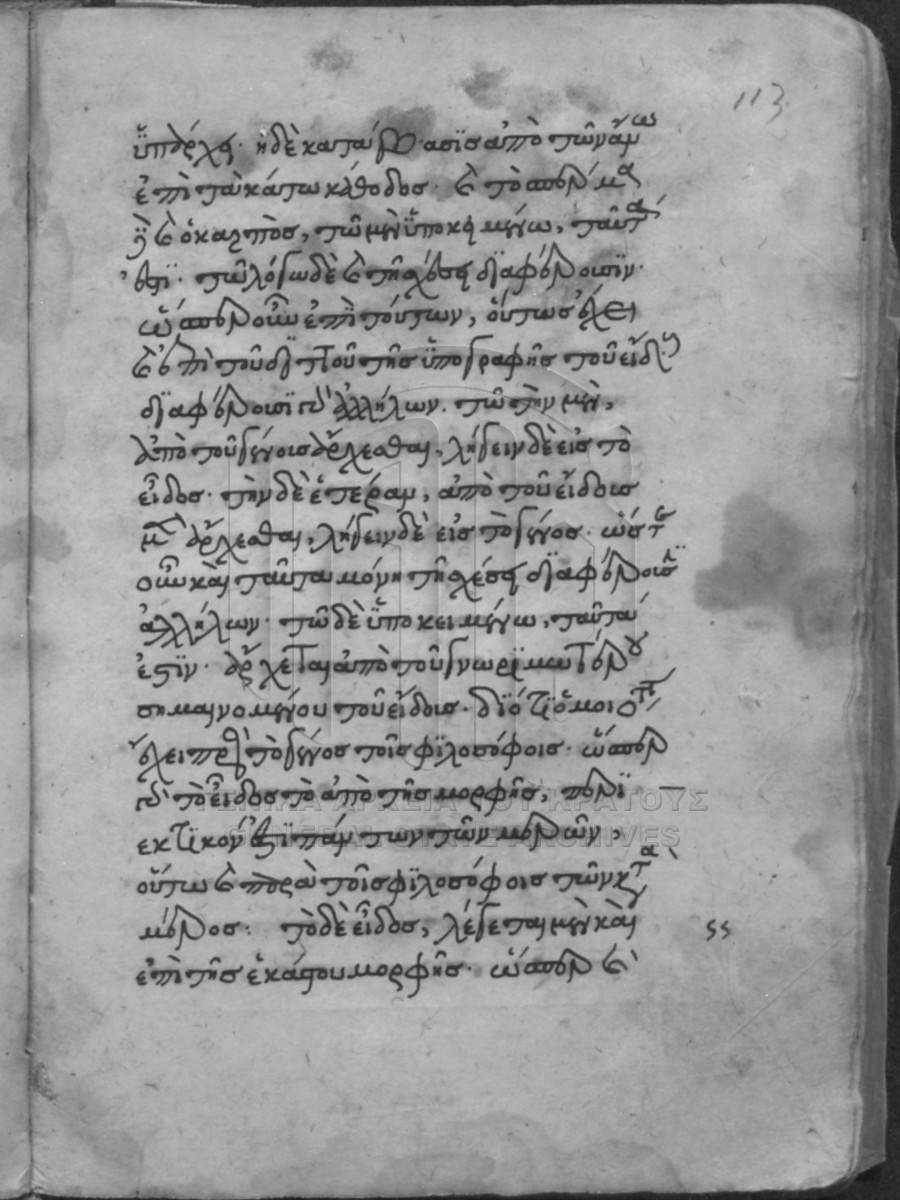 113
ὕπάρχει· ἡ δὲ κατάβασϊς ἀπὸ τῶν ἄνω
ἐπὶ τὰ κάτω κάθοδος· καὶ τὸ σπέρμα
ἢ καὶ ὁ καρπὸς, τῶ μὲν ὕποκειμένω, ταυτά
ἐστϊ· τῶ λόγω δὲ καὶ τῆ σχέσει δϊαφέρουσϊν·
ὥσπερ οὖν ἐπὶ τούτων, οὕτως ἔχει
καὶ ἐπὶ τοῦ δϊττοῦ τῆς ὕπογραφῆς τοῦ εἴδους
δϊαφέρουσϊ γὰρ ἀλλήλων. τῶ τὴν μὲν,
ἀπὸ τοῦ γένους ἄρχεσθαι, λήγειν δὲ εἰς τὸ
εἶδος· τὴν δὲ ἑτέραν, ἀπὸ τοῦ εἴδους
μὲν ἄρχεσθαι, λήγειν δὲ εἰς τὸ γένος· ὥστε
οὖν καὶ ταῦτα μόνη τῆ σχέσει δϊαφέρουσϊν
ἀλλήλων· τῶ δὲ ὕποκειμένω, ταυτά
ἐστϊν· ἄρχεται ἀπὸ τοῦ γνωρϊμωτέρου
σημαινομένου τοῦ εἴδους· δϊότϊ ὅμοιόν τι
ἔχει πρὸς τὸ γένος τοῖς φϊλοσόφοις· ὥσπερ
γὰρ τὸ εἶδος τὸ ἀπὸ τῆς μορφῆς, περϊ
εκτϊκόν ἐστϊ πάντων τῶν μερῶν,
οὕτω καὶ παρὰ τοῖς φϊλοσόφοις τῶν κατὰ
μέρος: τὸ δὲ εἶδος, λέγεται μὲν καὶ
ἐπὶ τῆς ἑκάστου μορφῆς· ὥσπερ καὶ
ΓΕΝΙΚΑ ΑΡΧΕΙΑ ΤΟΥ ΚΡΑΤΟΥΣ
GENERAL STATE ARCHIVES